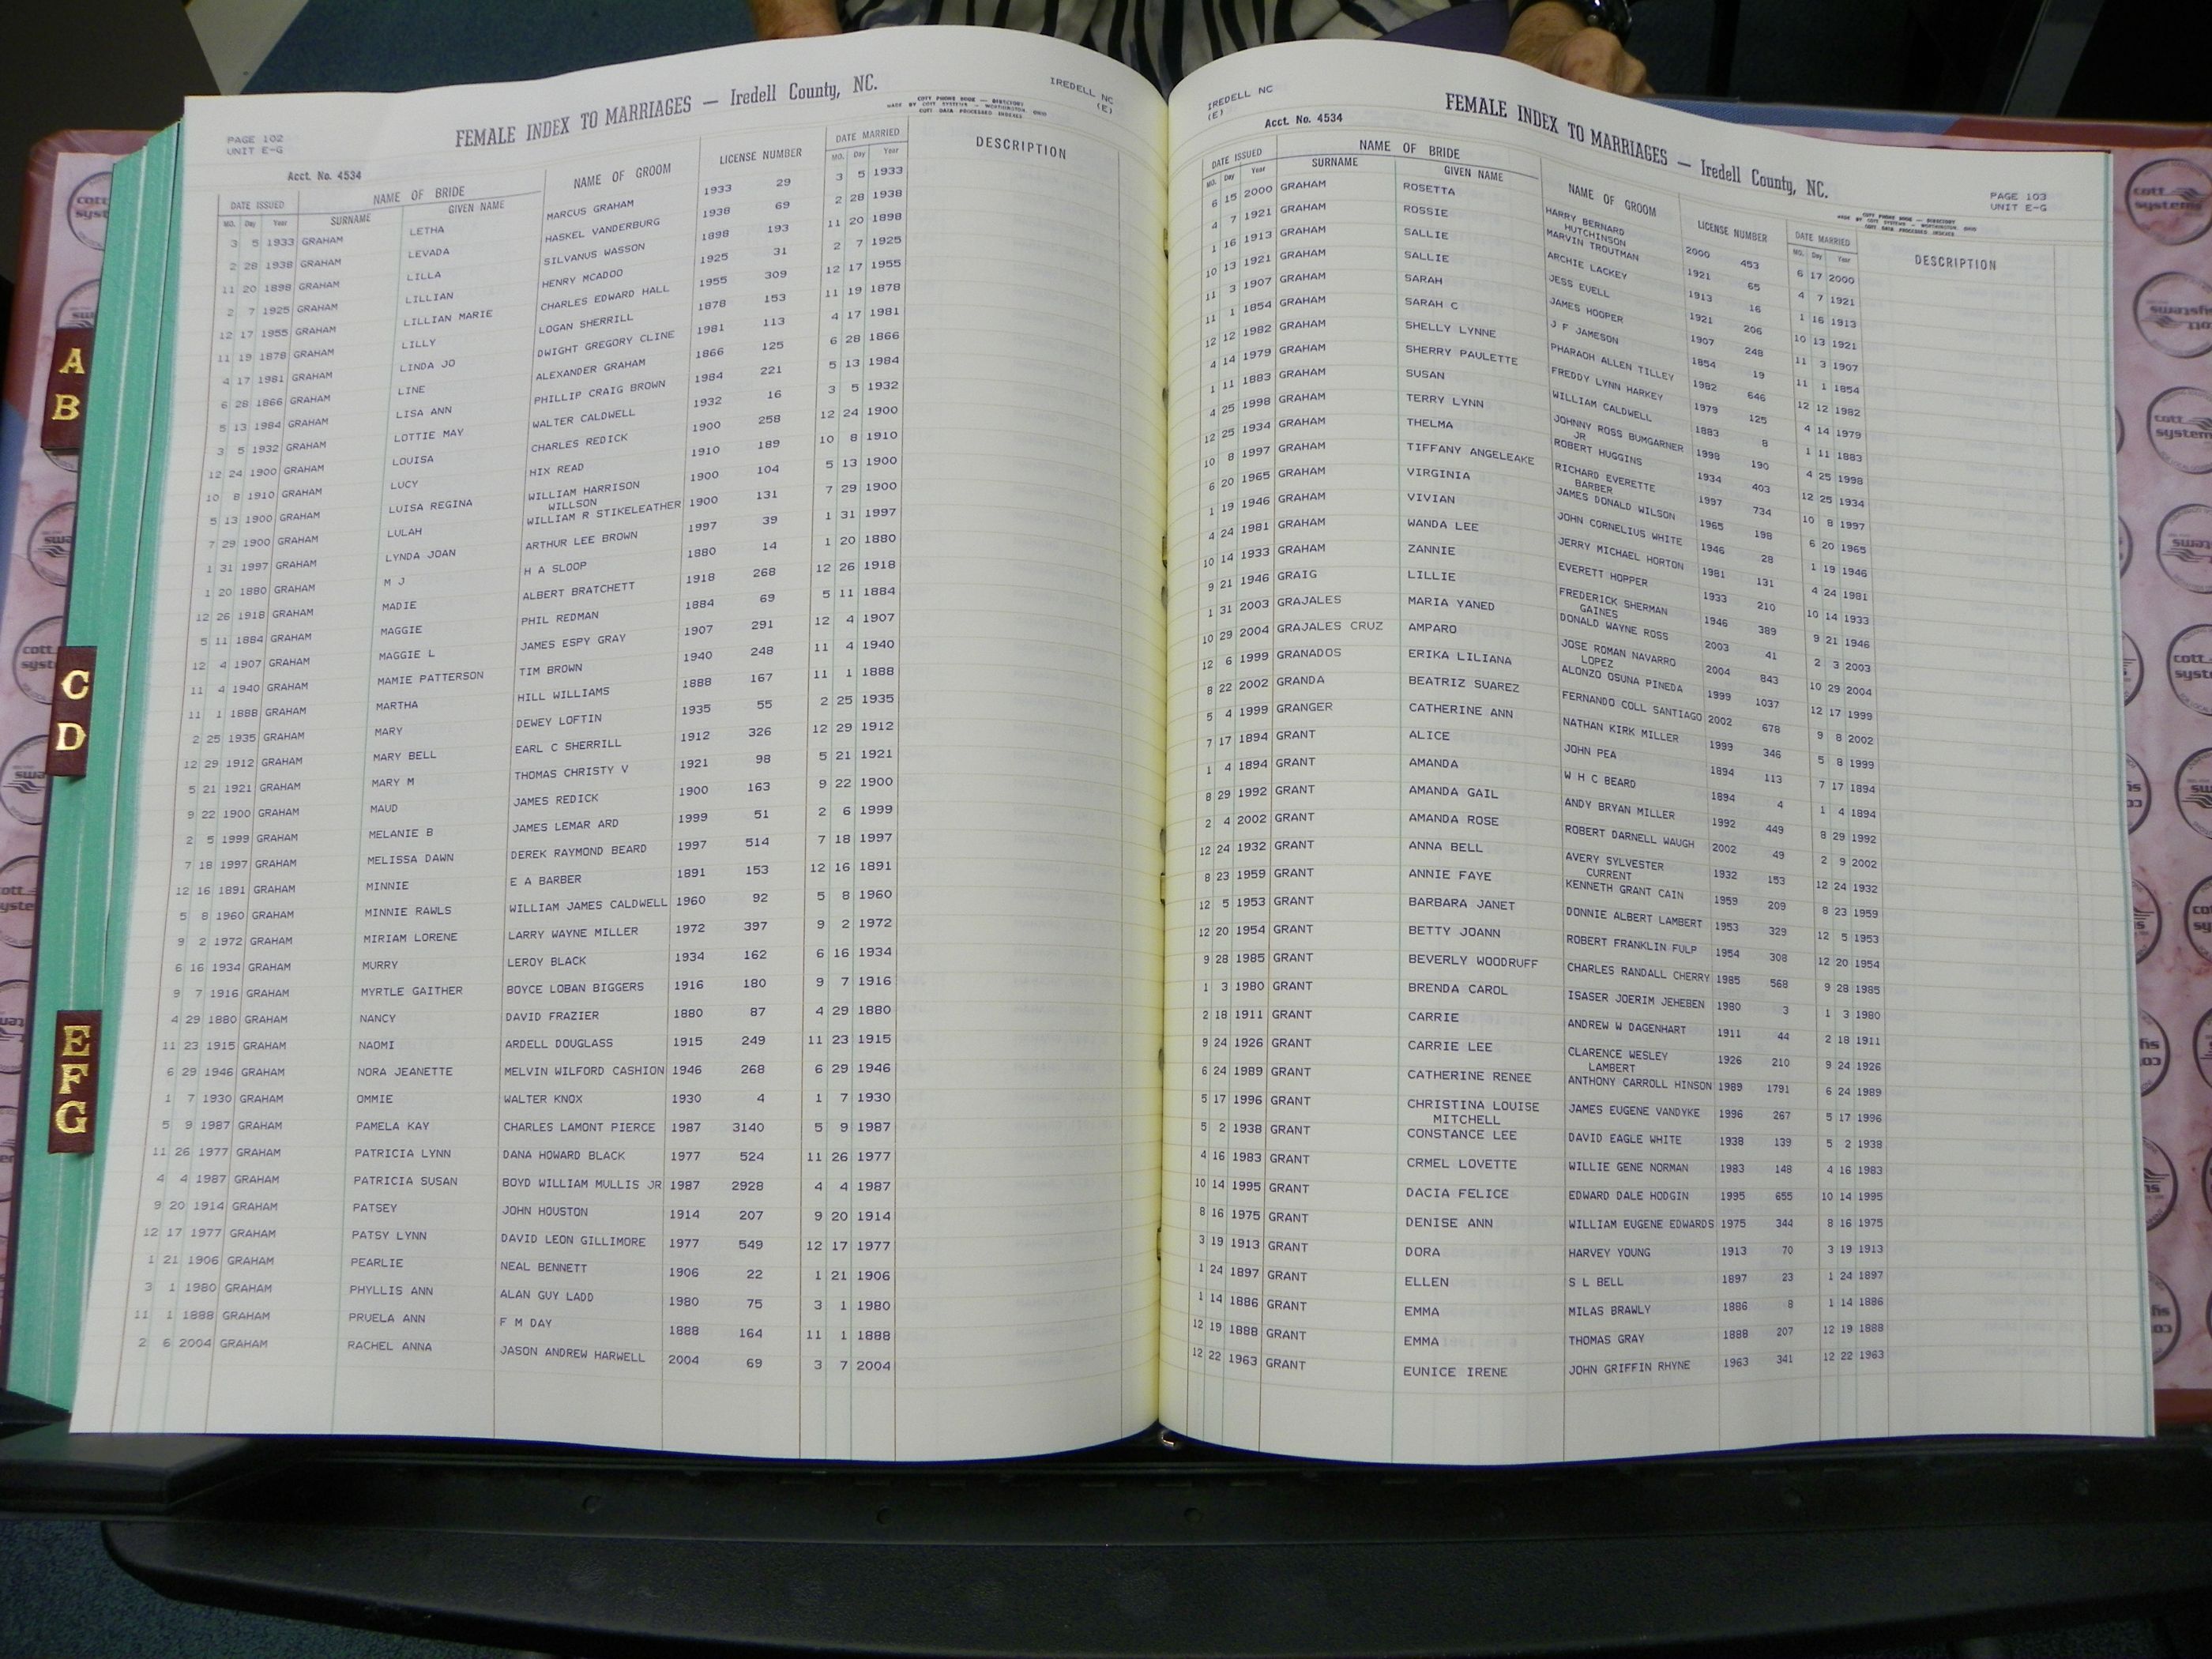 PAGE 102
UNIT E-G
FEMALE INDEX TO MARRIAGES — Iredell County, NC.
COTT PHONE BOOK — DIRECTORY
MADE BY COTT SYSTEMS — WORTHINGTON OHIO
COTT DATA PROCESSED INDEXES
IREDELL NC
(E)
Acct. No. 4534
DATE ISSUED NAME OF BRIDE NAME OF GROOM LICENSE NUMBER DATE MARRIED DESCRIPTION
MO. Day Year SURNAME GIVEN NAME MO. Day Year
3 5 1933 GRAHAM LETHA MARCUS GRAHAM 1933 29 3 5 1933
2 28 1938 GRAHAM LEVADA HASKEL VANDERBURG 1938 69 2 28 1938
11 20 1898 GRAHAM LILLA SILVANUS WASSON 1898 193 11 20 1898
2 7 1925 GRAHAM LILLIAN HENRY MCADOO 1925 31 2 7 1925
12 17 1955 GRAHAM LILLIAN MARIE CHARLES EDWARD HALL 1955 309 12 17 1955
11 19 1878 GRAHAM LILLY LOGAN SHERRILL 1878 153 11 19 1878
4 17 1981 GRAHAM LINDA JO DWIGHT GREGORY CLINE 1981 113 4 17 1981
6 28 1866 GRAHAM LINE ALEXANDER GRAHAM 1866 125 6 28 1866
5 13 1984 GRAHAM LISA ANN PHILLIP CRAIG BROWN 1984 221 5 13 1984
3 5 1932 GRAHAM LOTTIE MAY WALTER CALDWELL 1932 16 3 5 1932
12 24 1900 GRAHAM LOUISA CHARLES REDICK 1900 258 12 24 1900
10 8 1910 GRAHAM LUCY HIX READ 1910 189 10 8 1910
5 13 1900 GRAHAM LUISA REGINA WILLIAM HARRISON 1900 104 5 13 1900
WILLSON
7 29 1900 GRAHAM LULAH WILLIAM R STIKELEATHER 1900 131 7 29 1900
1 31 1997 GRAHAM LYNDA JOAN ARTHUR LEE BROWN 1997 39 1 31 1997
1 20 1880 GRAHAM M J H A SLOOP 1880 14 1 20 1880
12 26 1918 GRAHAM MADIE ALBERT BRATCHETT 1918 268 12 26 1918
5 11 1884 GRAHAM MAGGIE PHIL REDMAN 1884 69 5 11 1884
12 4 1907 GRAHAM MAGGIE L JAMES ESPY GRAY 1907 291 12 4 1907
11 4 1940 GRAHAM MAMIE PATTERSON TIM BROWN 1940 248 11 4 1940
11 1 1888 GRAHAM MARTHA HILL WILLIAMS 1888 167 11 1 1888
2 25 1935 GRAHAM MARY DEWEY LOFTIN 1935 55 2 25 1935
12 29 1912 GRAHAM MARY BELL EARL C SHERRILL 1912 326 12 29 1912
5 21 1921 GRAHAM MARY M THOMAS CHRISTY V 1921 98 5 21 1921
9 22 1900 GRAHAM MAUD JAMES REDICK 1900 163 9 22 1900
2 5 1999 GRAHAM MELANIE B JAMES LEMAR ARD 1999 51 2 6 1999
7 18 1997 GRAHAM MELISSA DAWN DEREK RAYMOND BEARD 1997 514 7 18 1997
12 16 1891 GRAHAM MINNIE E A BARBER 1891 153 12 16 1891
5 8 1960 GRAHAM MINNIE RAWLS WILLIAM JAMES CALDWELL 1960 92 5 8 1960
9 2 1972 GRAHAM MIRIAM LORENE LARRY WAYNE MILLER 1972 397 9 2 1972
6 16 1934 GRAHAM MURRY LEROY BLACK 1934 162 6 16 1934
9 7 1916 GRAHAM MYRTLE GAITHER BOYCE LOBAN BIGGERS 1916 180 9 7 1916
4 29 1880 GRAHAM NANCY DAVID FRAZIER 1880 87 4 29 1880
11 23 1915 GRAHAM NAOMI ARDELL DOUGLASS 1915 249 11 23 1915
6 29 1946 GRAHAM NORA JEANETTE MELVIN WILFORD CASHION 1946 268 6 29 1946
1 7 1930 GRAHAM OMMIE WALTER KNOX 1930 4 1 7 1930
5 9 1987 GRAHAM PAMELA KAY CHARLES LAMONT PIERCE 1987 3140 5 9 1987
11 26 1977 GRAHAM PATRICIA LYNN DANA HOWARD BLACK 1977 524 11 26 1977
4 4 1987 GRAHAM PATRICIA SUSAN BOYD WILLIAM MULLIS JR 1987 2928 4 4 1987
9 20 1914 GRAHAM PATSEY JOHN HOUSTON 1914 207 9 20 1914
12 17 1977 GRAHAM PATSY LYNN DAVID LEON GILLIMORE 1977 549 12 17 1977
1 21 1906 GRAHAM PEARLIE NEAL BENNETT 1906 22 1 21 1906
3 1 1980 GRAHAM PHYLLIS ANN ALAN GUY LADD 1980 75 3 1 1980
11 1 1888 GRAHAM PRUELA ANN F M DAY 1888 164 11 1 1888
2 6 2004 GRAHAM RACHEL ANNA JASON ANDREW HARWELL 2004 69 3 7 2004
IREDELL NC
(E)
Acct. No. 4534
FEMALE INDEX TO MARRIAGES — Iredell County, NC.
PAGE 103
UNIT E-G
COTT PHONE BOOK — DIRECTORY
MADE BY COTT SYSTEMS — WORTHINGTON OHIO
COTT DATA PROCESSED INDEXES
DATE ISSUED NAME OF BRIDE NAME OF GROOM LICENSE NUMBER DATE MARRIED DESCRIPTION
MO. Day Year SURNAME GIVEN NAME MO. Day Year
6 15 2000 GRAHAM ROSETTA HARRY BERNARD 2000 453 6 17 2000
HUTCHINSON
4 7 1921 GRAHAM ROSSIE MARVIN TROUTMAN 1921 65 4 7 1921
1 16 1913 GRAHAM SALLIE ARCHIE LACKEY 1913 16 1 16 1913
10 13 1921 GRAHAM SALLIE JESS EUELL 1921 206 10 13 1921
11 3 1907 GRAHAM SARAH JAMES HOOPER 1907 248 11 3 1907
11 1 1854 GRAHAM SARAH C J F JAMESON 1854 19 11 1 1854
12 12 1982 GRAHAM SHELLY LYNNE PHARAOH ALLEN TILLEY 1982 646 12 12 1982
4 14 1979 GRAHAM SHERRY PAULETTE FREDDY LYNN HARKEY 1979 125 4 14 1979
1 11 1883 GRAHAM SUSAN WILLIAM CALDWELL 1883 8 1 11 1883
4 25 1998 GRAHAM TERRY LYNN JOHNNY ROSS BUMGARNER 1998 190 4 25 1998
JR
12 25 1934 GRAHAM THELMA ROBERT HUGGINS 1934 403 12 25 1934
10 8 1997 GRAHAM TIFFANY ANGELEAKE RICHARD EVERETTE 1997 734 10 8 1997
BARBER
6 20 1965 GRAHAM VIRGINIA JAMES DONALD WILSON 1965 198 6 20 1965
1 19 1946 GRAHAM VIVIAN JOHN CORNELIUS WHITE 1946 28 1 19 1946
4 24 1981 GRAHAM WANDA LEE JERRY MICHAEL HORTON 1981 131 4 24 1981
10 14 1933 GRAHAM ZANNIE EVERETT HOPPER 1933 210 10 14 1933
9 21 1946 GRAIG LILLIE FREDERICK SHERMAN 1946 389 9 21 1946
GAINES
1 31 2003 GRAJALES MARIA YANED DONALD WAYNE ROSS 2003 41 2 3 2003
10 29 2004 GRAJALES CRUZ AMPARO JOSE ROMAN NAVARRO 2004 843 10 29 2004
LOPEZ
12 6 1999 GRANADOS ERIKA LILIANA ALONZO OSUNA PINEDA 1999 1037 12 17 1999
8 22 2002 GRANDA BEATRIZ SUAREZ FERNANDO COLL SANTIAGO 2002 678 9 8 2002
5 4 1999 GRANGER CATHERINE ANN NATHAN KIRK MILLER 1999 346 5 8 1999
7 17 1894 GRANT ALICE JOHN PEA 1894 113 7 17 1894
1 4 1894 GRANT AMANDA W H C BEARD 1894 4 1 4 1894
8 29 1992 GRANT AMANDA GAIL ANDY BRYAN MILLER 1992 449 8 29 1992
2 4 2002 GRANT AMANDA ROSE ROBERT DARNELL WAUGH 2002 49 2 9 2002
12 24 1932 GRANT ANNA BELL AVERY SYLVESTER 1932 153 12 24 1932
CURRENT
8 23 1959 GRANT ANNIE FAYE KENNETH GRANT CAIN 1959 209 8 23 1959
12 5 1953 GRANT BARBARA JANET DONNIE ALBERT LAMBERT 1953 329 12 5 1953
12 20 1954 GRANT BETTY JOANN ROBERT FRANKLIN FULP 1954 308 12 20 1954
9 28 1985 GRANT BEVERLY WOODRUFF CHARLES RANDALL CHERRY 1985 568 9 28 1985
1 3 1980 GRANT BRENDA CAROL ISASER JOERIM JEHEBEN 1980 3 1 3 1980
2 18 1911 GRANT CARRIE ANDREW W DAGENHART 1911 44 2 18 1911
9 24 1926 GRANT CARRIE LEE CLARENCE WESLEY 1926 210 9 24 1926
LAMBERT
6 24 1989 GRANT CATHERINE RENEE ANTHONY CARROLL HINSON 1989 1791 6 24 1989
5 17 1996 GRANT CHRISTINA LOUISE JAMES EUGENE VANDYKE 1996 267 5 17 1996
MITCHELL
5 2 1938 GRANT CONSTANCE LEE DAVID EAGLE WHITE 1938 139 5 2 1938
4 16 1983 GRANT CRMEL LOVETTE WILLIE GENE NORMAN 1983 148 4 16 1983
10 14 1995 GRANT DACIA FELICE EDWARD DALE HODGIN 1995 655 10 14 1995
8 16 1975 GRANT DENISE ANN WILLIAM EUGENE EDWARDS 1975 344 8 16 1975
3 19 1913 GRANT DORA HARVEY YOUNG 1913 70 3 19 1913
1 24 1897 GRANT ELLEN S L BELL 1897 23 1 24 1897
1 14 1886 GRANT EMMA MILAS BRAWLY 1886 8 1 14 1886
12 19 1888 GRANT EMMA THOMAS GRAY 1888 207 12 19 1888
12 22 1963 GRANT EUNICE IRENE JOHN GRIFFIN RHYNE 1963 341 12 22 1963
A
B
C
D
E
F
G
cott
systems